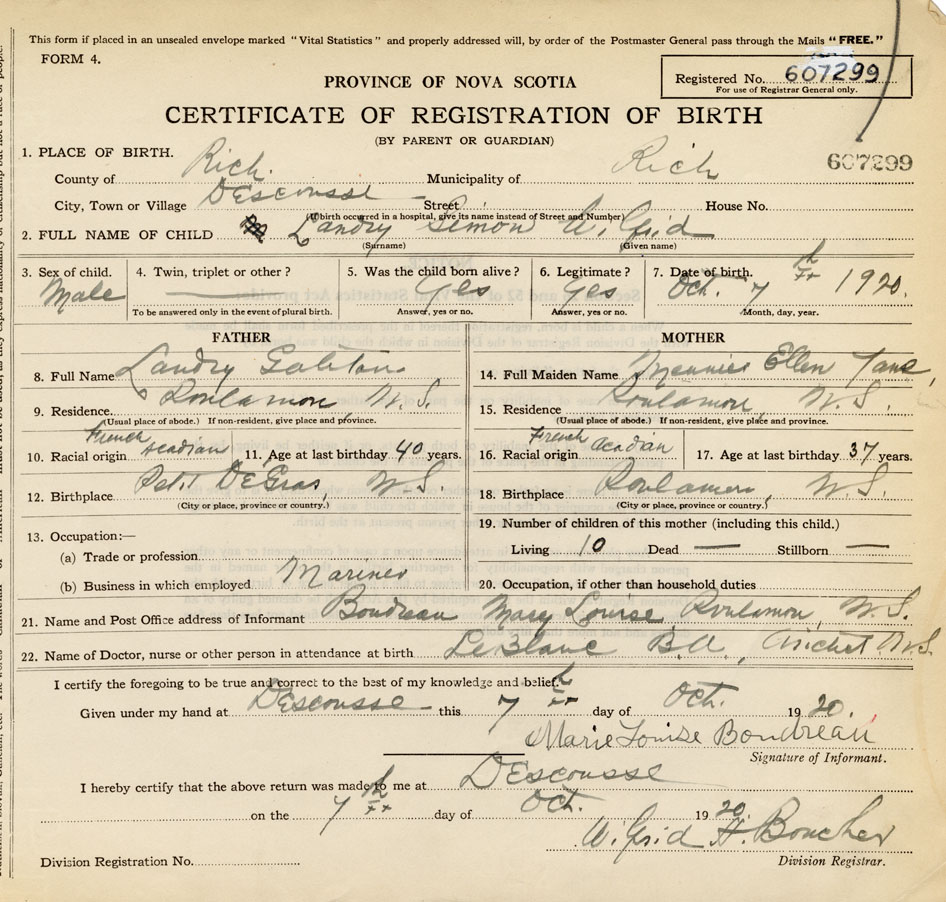 This form if placed in an unsealed envelope marked "Vital Statistics" and properly addressed will, by order of the Postmaster General pass through the Mails "FREE."
FORM 4.
Registered No. 607299
For use of Registrar General only.
PROVINCE OF NOVA SCOTIA
CERTIFICATE OF REGISTRATION OF BIRTH
(BY PARENT OR GUARDIAN)
607299
1. PLACE OF BIRTH.
County of Rich. Municipality of Rich
City, Town or Village DEscousse Street House No.
(If birth occurred in a hospital, give its name instead of Street and Number)
2. FULL NAME OF CHILD Landry Simon Wilfrid
(Surname) (Given name)
3. Sex of child. Male
4. Twin, triplet or other?
To be answered only in the event of plural birth.
5. Was the child born alive? Yes
Answer, yes or no.
6. Legitimate? Yes
Answer, yes or no.
7. Date of birth. Oct. 7th 1920.
Month, day, year.
FATHER
8. Full Name Landry
9. Residence N.S.
(Usual place of abode.) If non-resident, give place and province.
10. Racial origin French Acadian 11. Age at last birthday 40 years.
12. Birthplace Petit DeGras, N.S.
(City or place, province or country.)
13. Occupation:—
(a) Trade or profession
(b) Business in which employed Mariner
MOTHER
14. Full Maiden Name Ellen
15. Residence N.S.
(Usual place of abode.) If non-resident, give place and province.
16. Racial origin French Acadian 17. Age at last birthday 37 years.
18. Birthplace N.S.
(City or place, province or country.)
19. Number of children of this mother (including this child.)
Living 10 Dead — Stillborn —
20. Occupation, if other than household duties
21. Name and Post Office address of Informant Boudreau Mary Louise N.S.
22. Name of Doctor, nurse or other person in attendance at birth LeBlanc B.A., Arichat N.S.
I certify the foregoing to be true and correct to the best of my knowledge and belief.
Given under my hand at DEscousse this 7th day of Oct. 1920.
Marie Louise Boudreau
Signature of Informant.
I hereby certify that the above return was made to me at DEscousse
on the 7th day of Oct. 1920.
Wilfrid H. Boucher
Division Registration No.
Division Registrar.